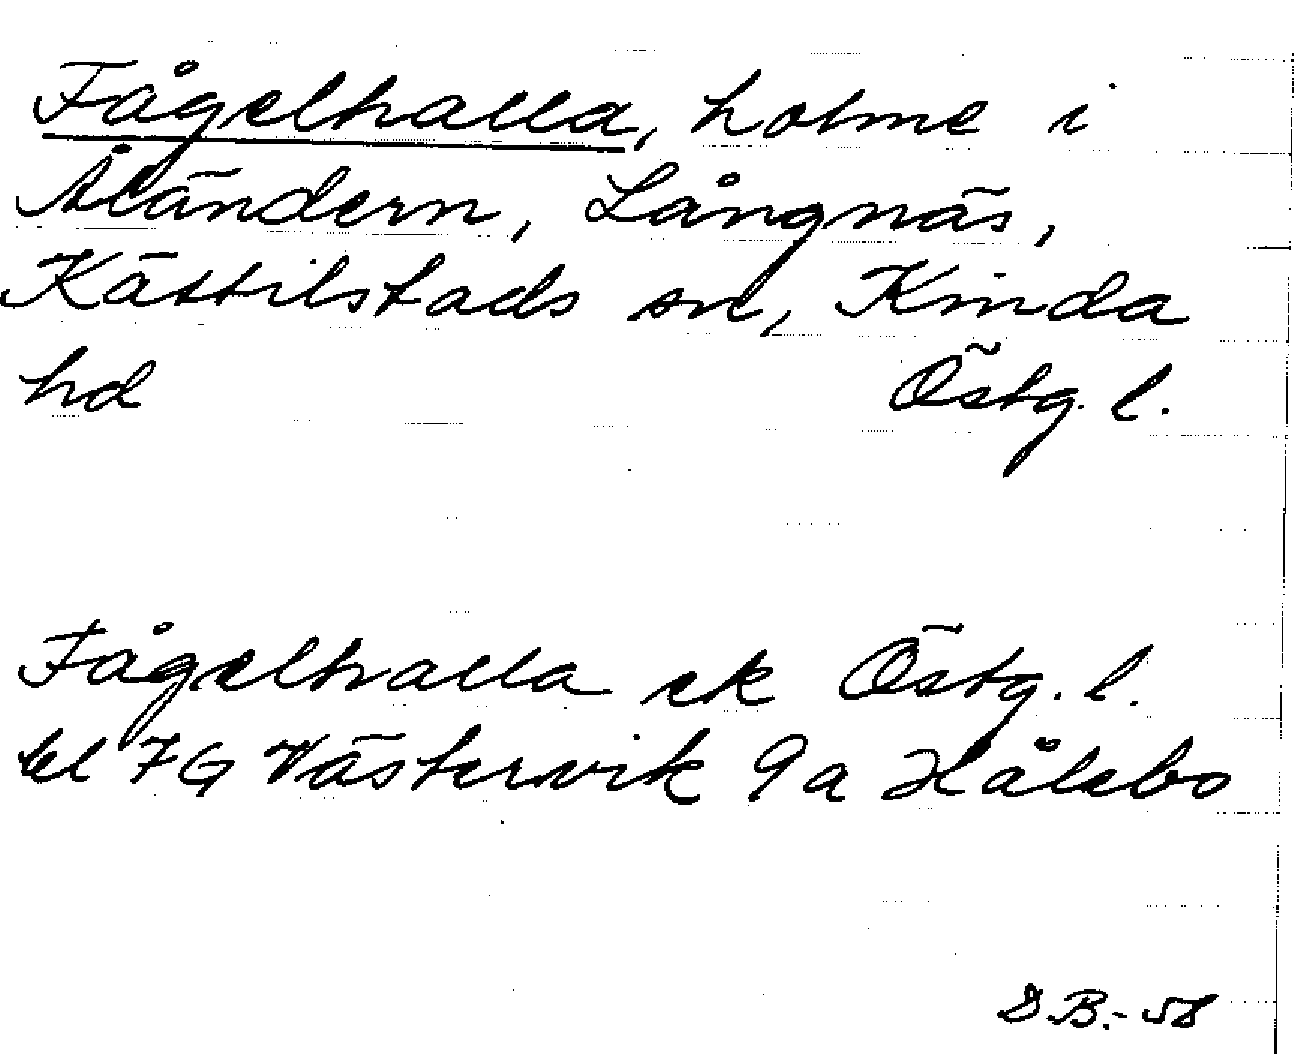 Fågelhalla, holme i
Åländern, Långnäs,
Kättilstads sn, Kinda
hd Östg. l.
Fågelhalla ek Östg. l.
bl 7G Västervik 9a Hålebo
D.B.-58